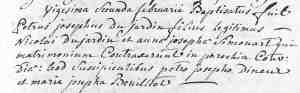 vigesima secunda februarii Baptisatus fuit
Petrus josephus Du jardin filius legitimus
Nicolai Dujardin et annæ josephæ Simouart qui
matrimonium Contraxerunt in parochia
Suscipientibus petro josepho Dinour
et maria josepha